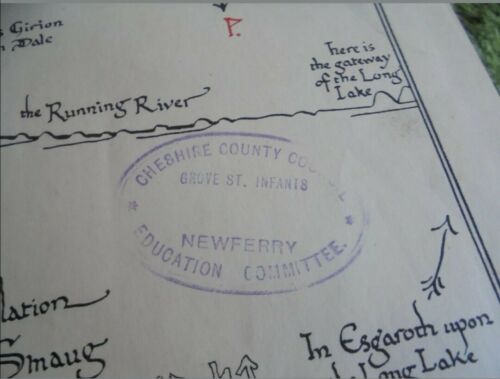 Girion
Dale
P.
the Running River
here is
the gateway
of the Long
Lake
CHESHIRE COUNTY COUNCIL
GROVE ST. INFANTS
NEWFERRY
EDUCATION COMMITTEE.
lation
Smaug
In Esgaroth upon
Long Lake